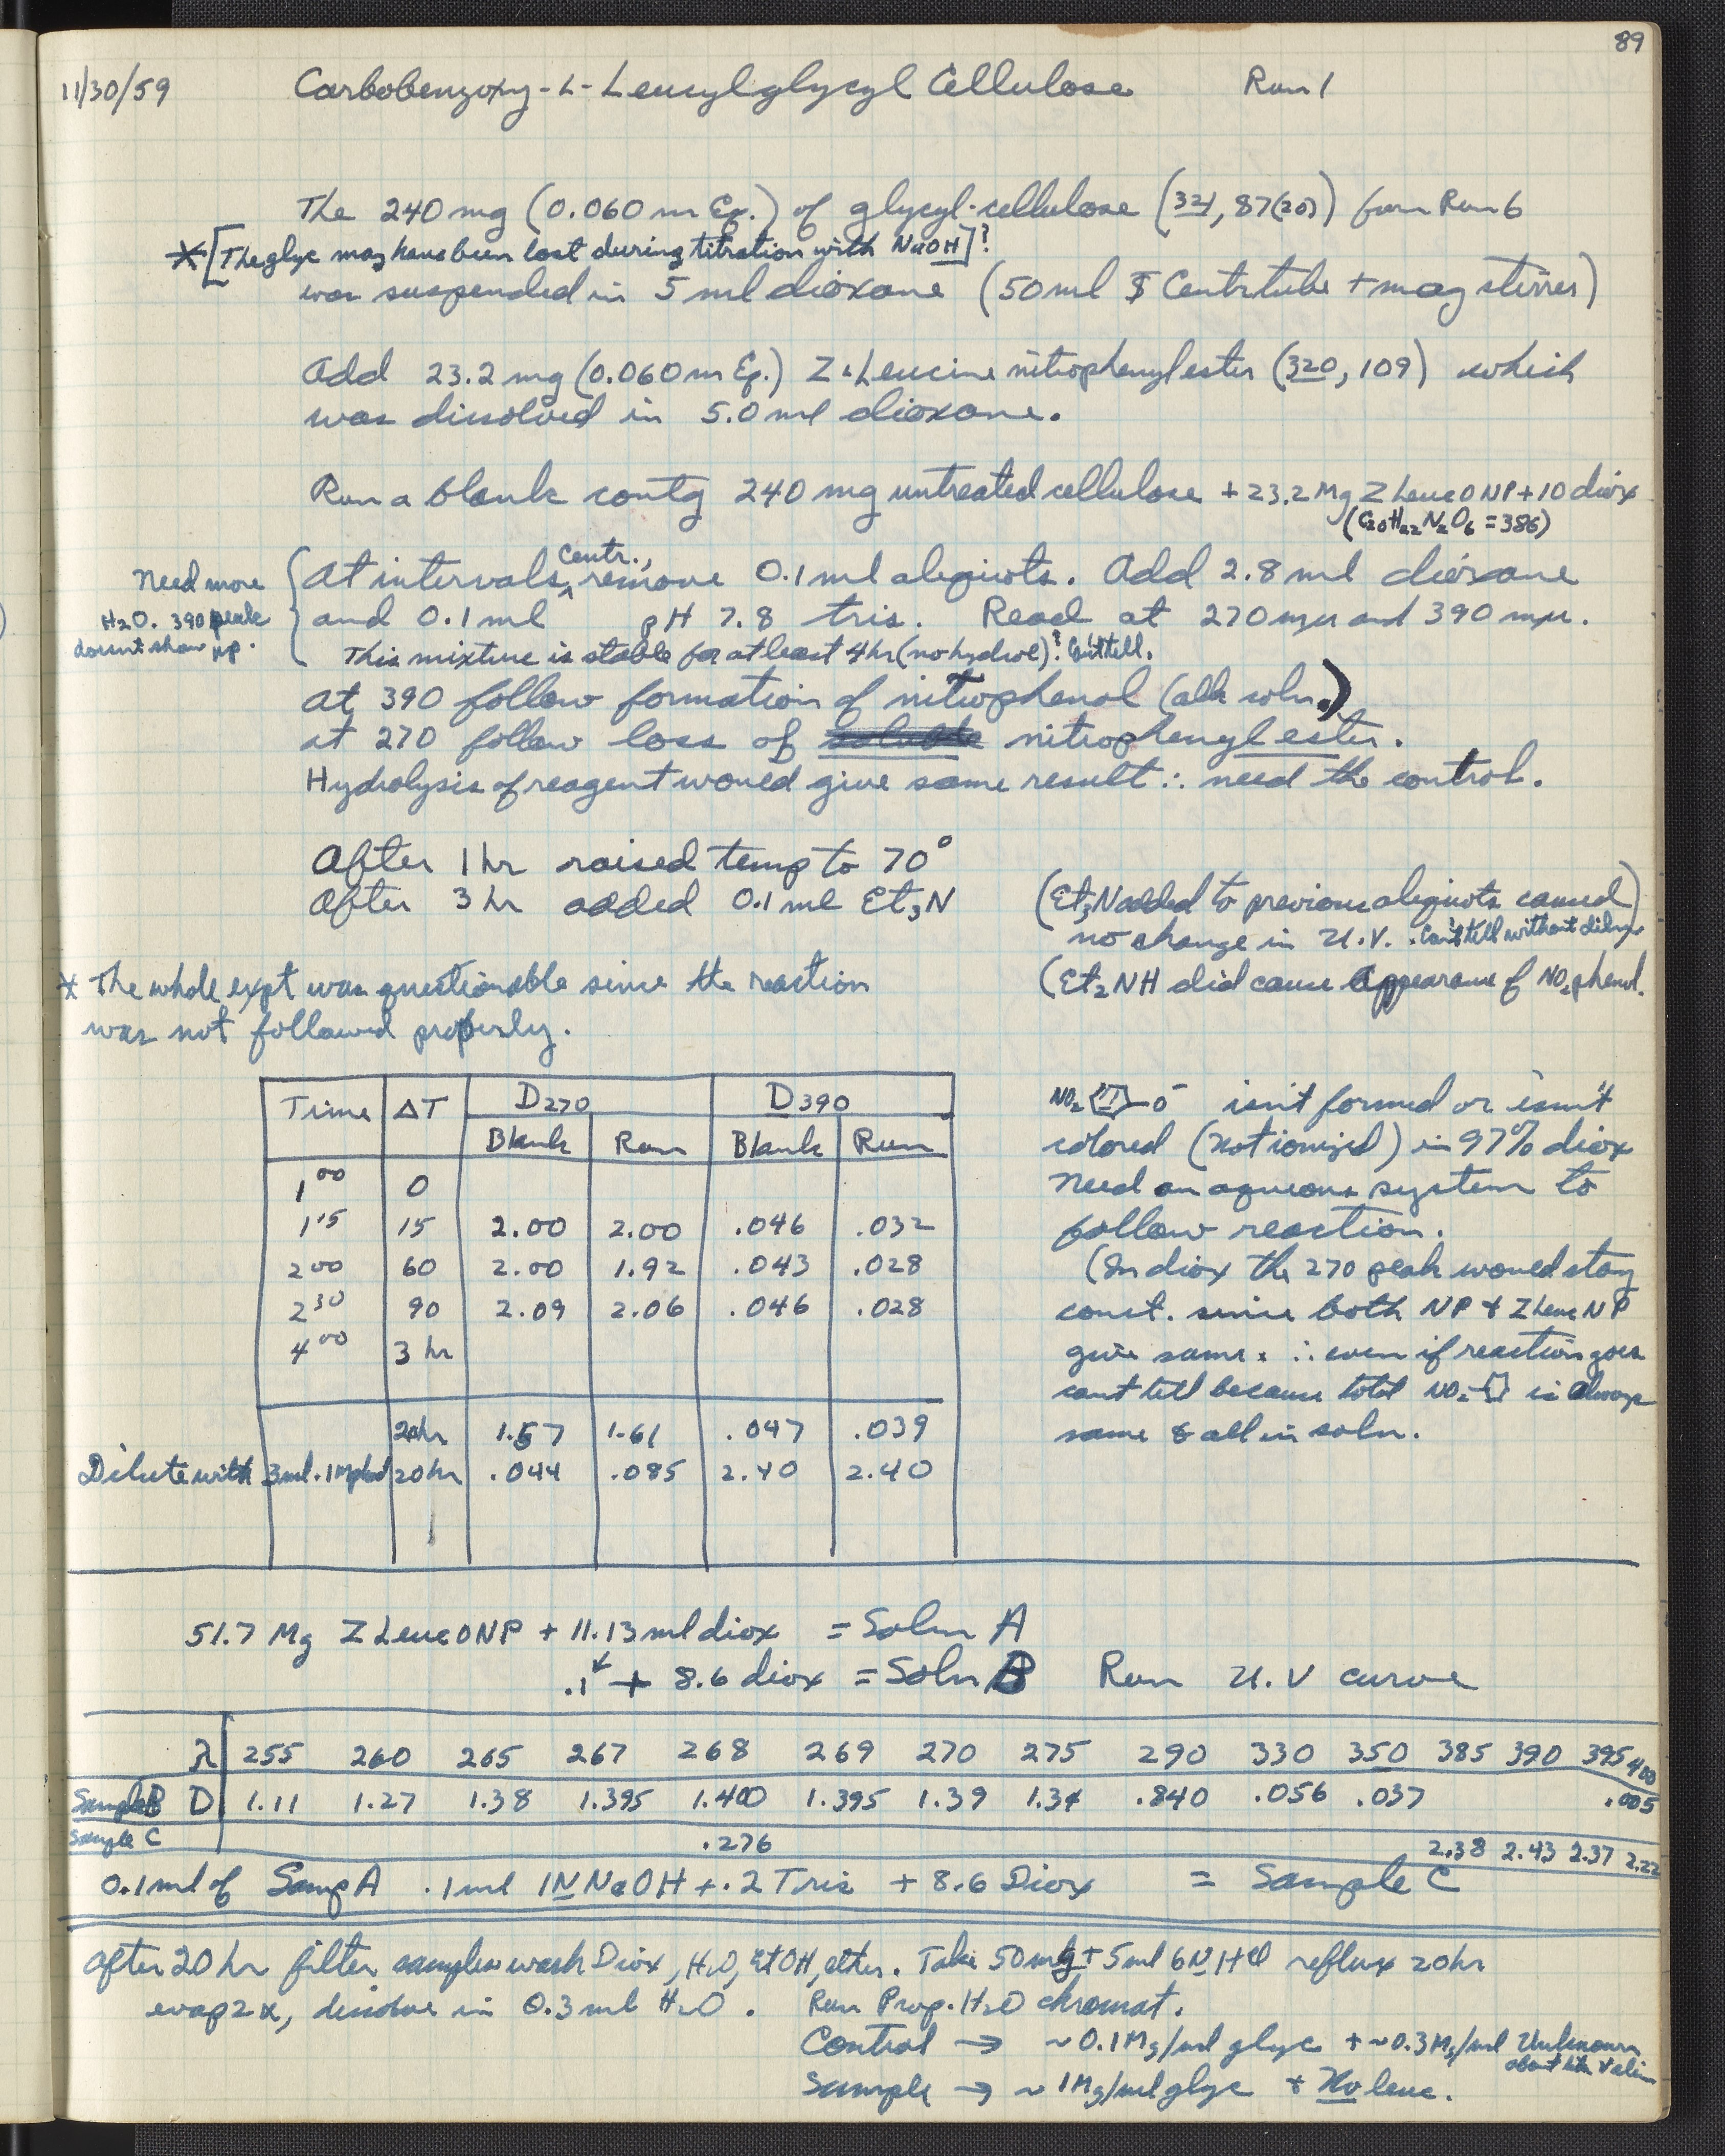 89
11/30/59 Carbobenzoxy-L-Leucylglycyl Cellulose Run 1
The 240 mg (0.060 m Eq.) of glycyl-cellulose (321, 87(20)) from Run 6
*[The glyc may have been lost during titration with NaOH]?
was suspended in 5 ml dioxane (50 ml $ Centr tube + mag stirrer)
Add 23.2 mg (0.060 m Eq.) Z-L-Leucine nitrophenyl ester (320, 109) which
was dissolved in 5.0 ml dioxane.
Run a blank contg 240 mg untreated cellulose + 23.2 Mg Z Leuc ONP + 10 diox
(C20H22N2O6 = 386)
At intervals, Centr., remove 0.1 ml aliquots. Add 2.8 ml dioxane
and 0.1 ml pH 7.8 tris. Read at 270 mµ and 390 mµ.
Need more
H2O. 390 peak
doesn't show up.
This mixture is stable for at least 4 hr (no hydrol)? Can't tell.
At 390 follow formation of nitrophenol (alk soln.)
at 270 follow loss of nitrophenyl ester.
Hydrolysis of reagent would give same result ∴ need the control.
After 1 hr raised temp to 70°
After 3 hr added 0.1 ml Et3N
(Et3N added to previous aliquots caused)
no change in U.V. . Can't tell without diln
(Et2NH did cause appearance of NO2 phenol.
* The whole expt was questionable since the reaction
was not followed properly.
Time ΔT D270 D390
Blank Run Blank Run
1 00 0
1 15 15 2.00 2.00 .046 .032
2 00 60 2.00 1.92 .043 .028
2 30 90 2.09 2.06 .046 .028
4 00 3 hr
20hr 1.57 1.61 .047 .039
Dilute with 3ml .1M phos 20hr .044 .085 2.40 2.40
NO2 O- isn't formed or isn't
colored (not ionized) in 97% diox
Need an aqueous system to
follow reaction.
(In diox the 270 peak would stay
const. since both NP + Z Leuc NP
give same. ∴ even if reaction goes
cant tell because total NO2- is always
same & all in soln.
51.7 Mg Z Leuc ONP + 11.13 ml diox = Soln A
.1 + 8.6 diox = Soln B Run U.V curve
λ 255 260 265 267 268 269 270 275 290 330 350 385 390 395 400
Sample B D 1.11 1.27 1.38 1.395 1.400 1.395 1.39 1.34 .840 .056 .037 .005
Sample C .276 2.38 2.43 2.37 2.22
0.1 ml of Samp A .1 ml 1N NaOH + .2 Tris + 8.6 Diox = Sample C
After 20 hr filter samples wash Diox, H2O, EtOH, ether. Take 50 mg + 5 ml 6N HCl reflux 20 hr
evap 2x, dissolve in 0.3 ml H2O. Run Prop. H2O chromat.
Control → ~0.1 Mg/ml glyc + ~0.3 Mg/ml Unknown
about like Valine
Sample → ~1 Mg/ml glyc + No leuc.